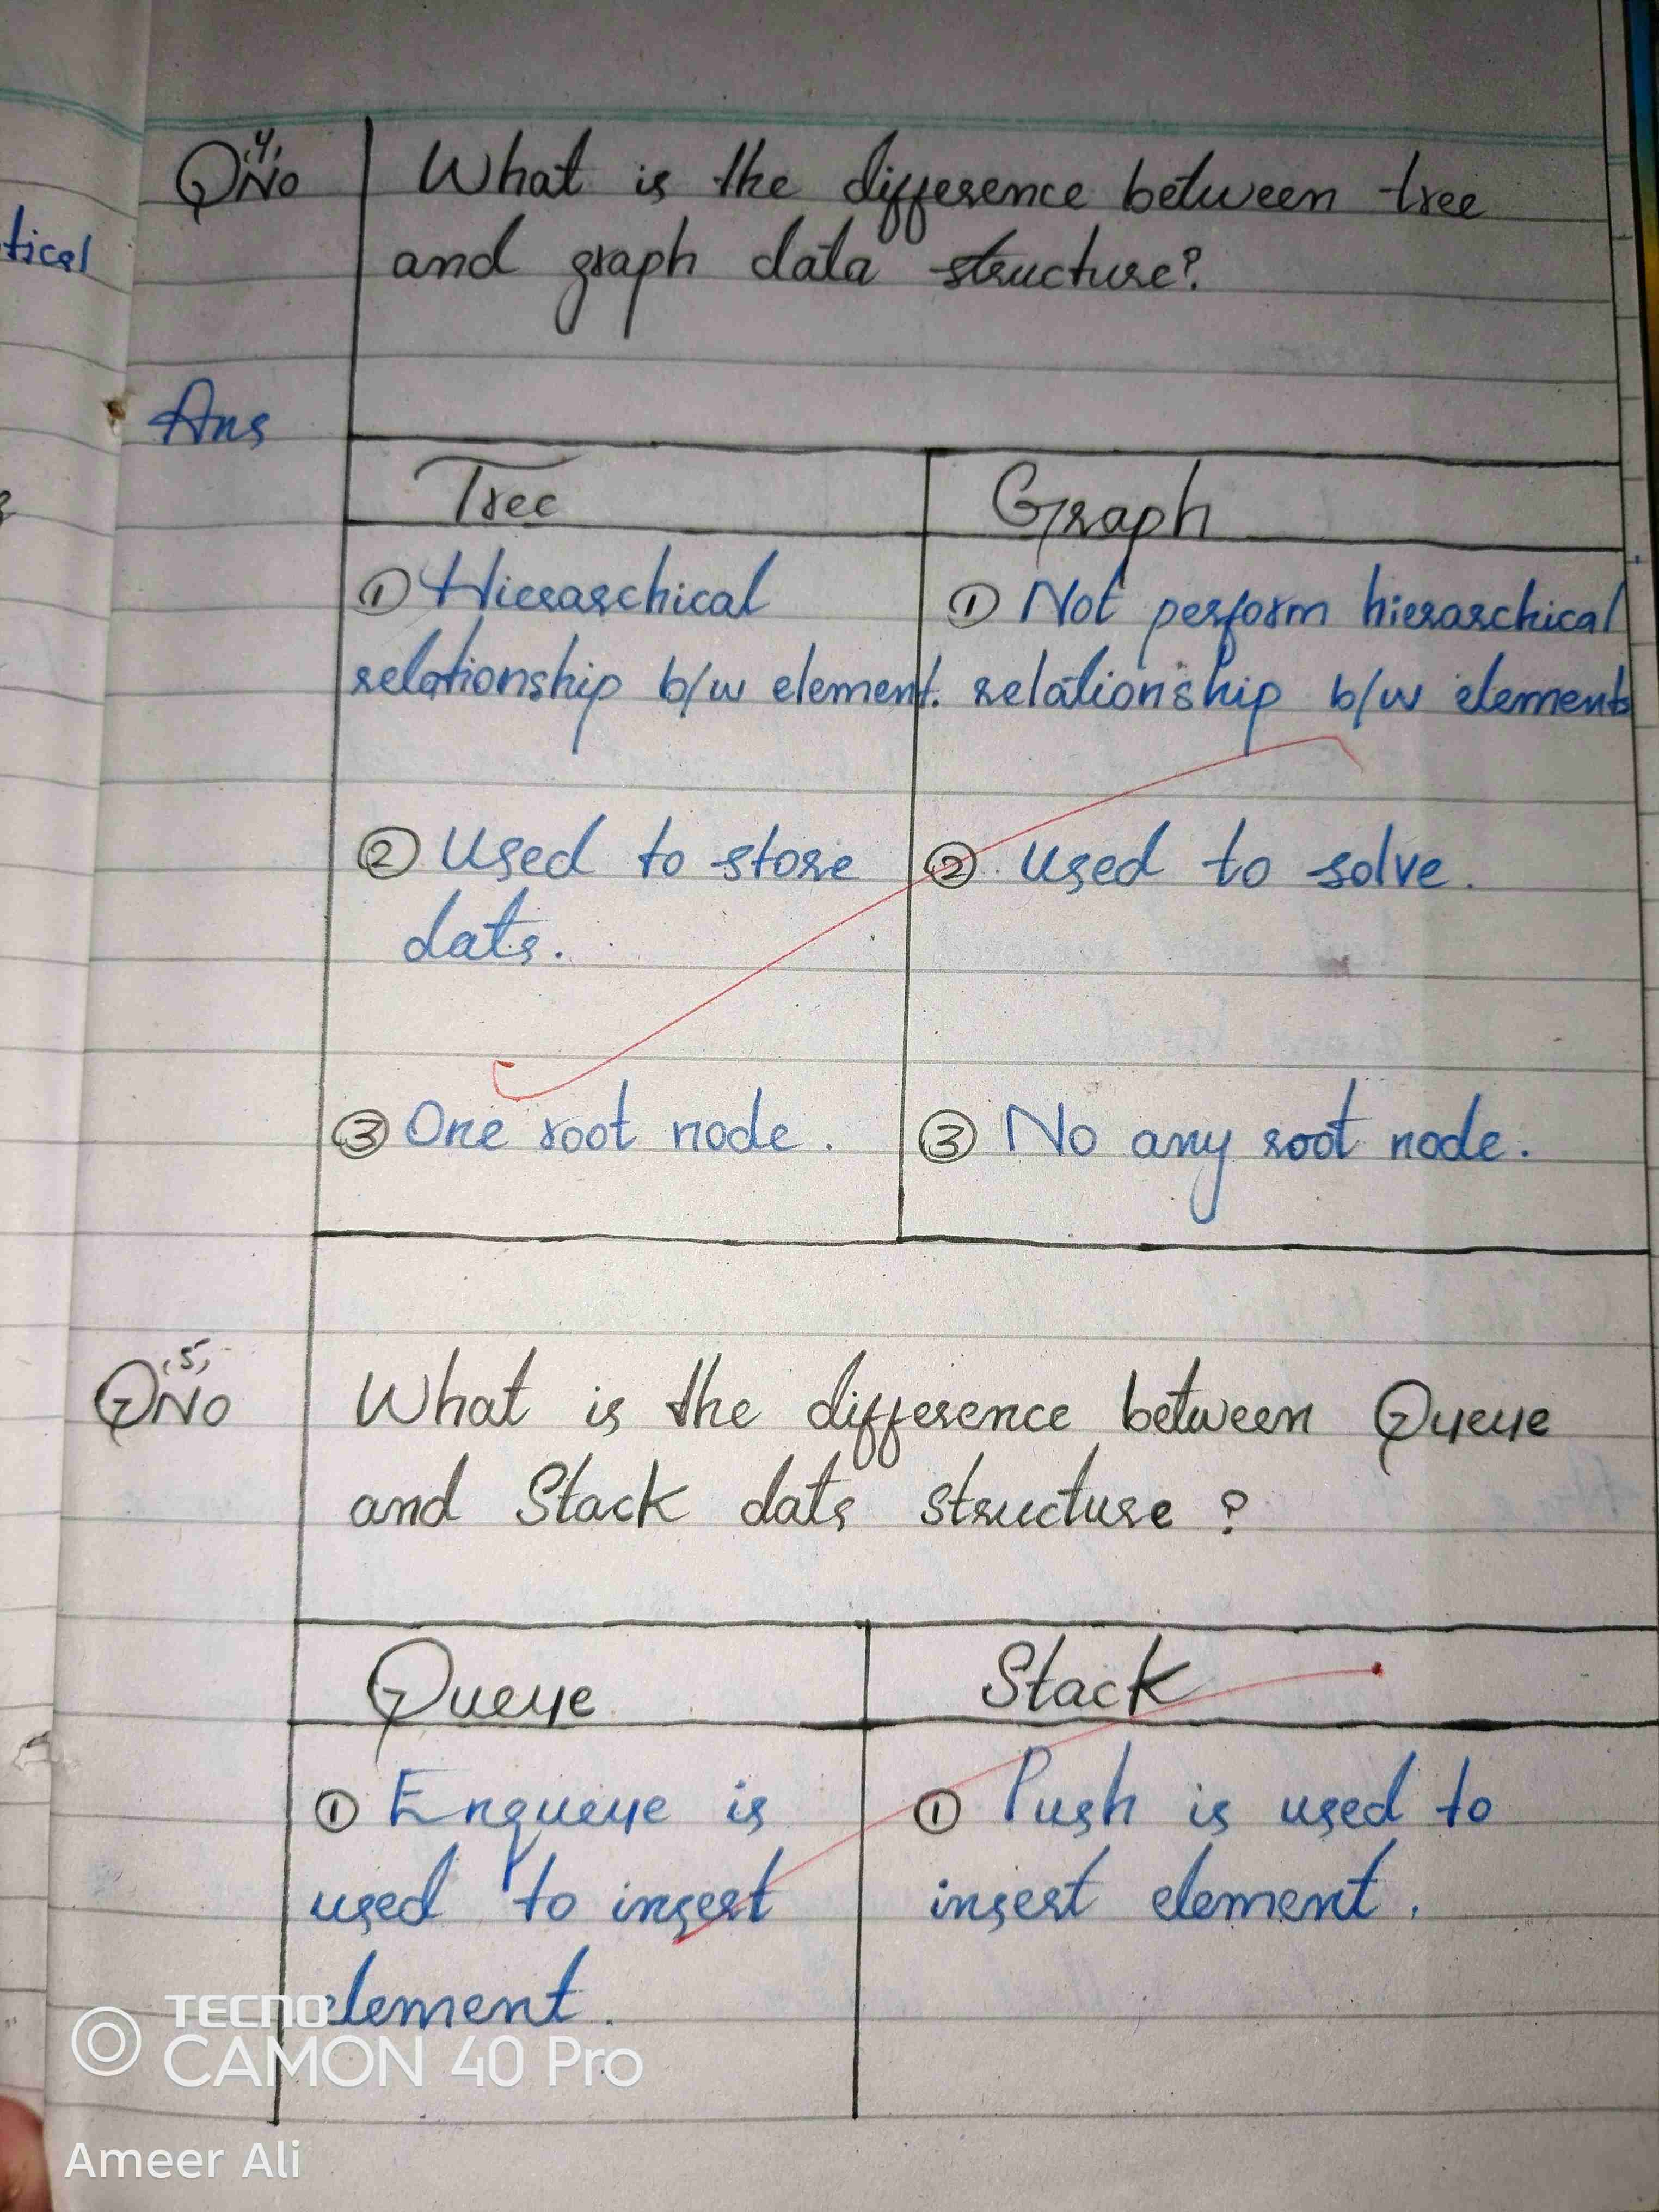 tical
Q No (4) What is the difference between tree
and graph data structure?
Ans
Tree
Graph
① Hierarchical
relationship b/w element.
① Not perform hierarchical
relationship b/w elements
② Used to store
data.
② Used to solve.
③ One root node.
③ No any root node.
Q No (5) What is the difference between Queue
and Stack data structure?
Queue
Stack
① Enqueue is
used to insert
element.
① Push is used to
insert element.
TECNO
CAMON 40 Pro
Ameer Ali